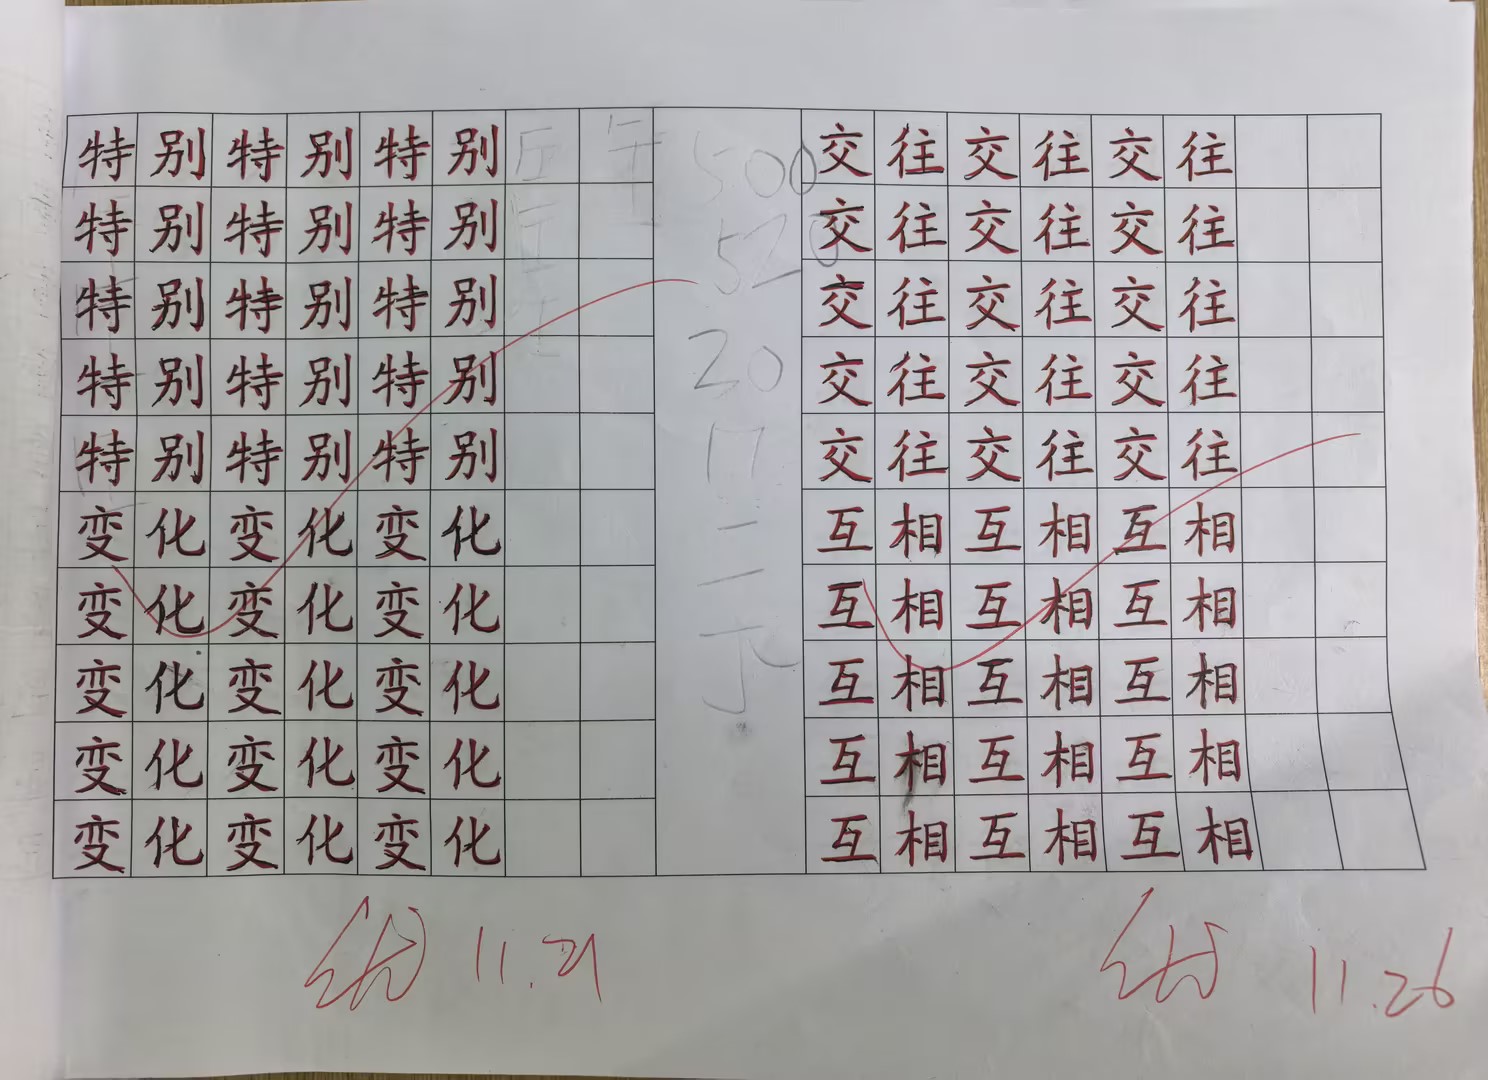 特别特别特别
特别特别特别
特别特别特别
特别特别特别
特别特别特别
变化变化变化
变化变化变化
变化变化变化
变化变化变化
变化变化变化
11.21
500
520
20
交往交往交往
交往交往交往
交往交往交往
交往交往交往
交往交往交往
互相互相互相
互相互相互相
互相互相互相
互相互相互相
互相互相互相
11.26